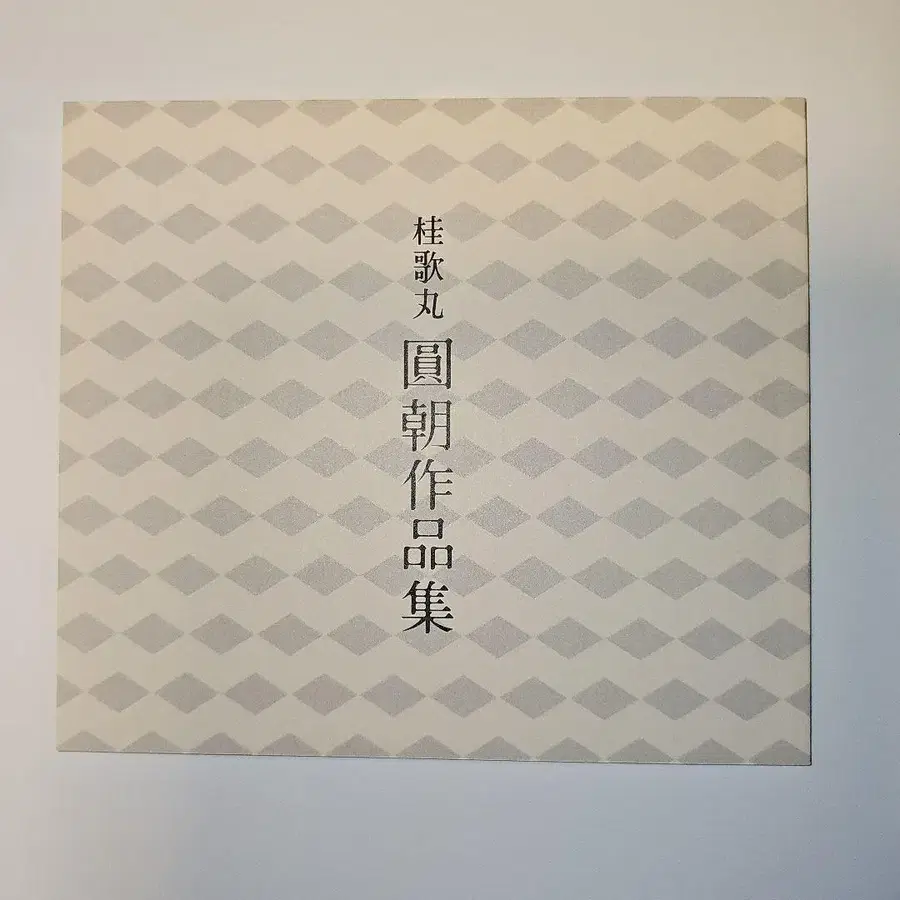 桂歌丸
圓朝作品集